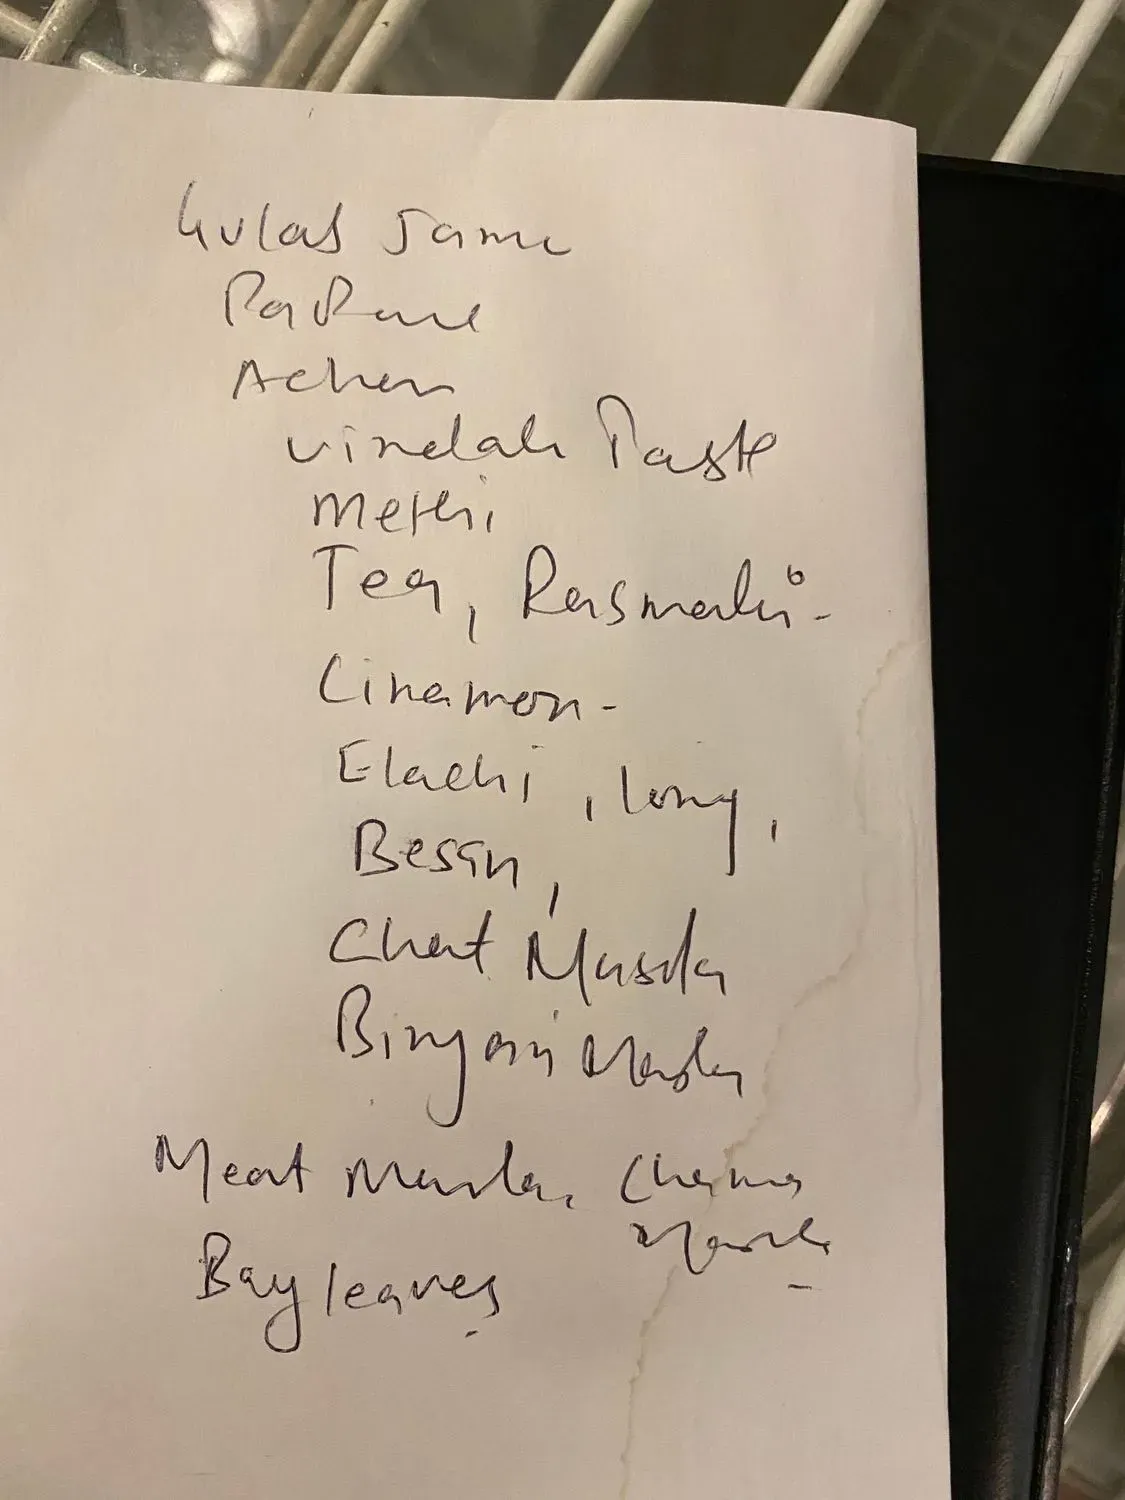 Gulab Jamu
Achar
vindalu Paste
Methi
Tea, Rasmalai-
Cinamon-
Elachi, long,
Besan,
Chat Masala
Biryani Masala
Meat Masala, Channa
Masala
Bay leaves